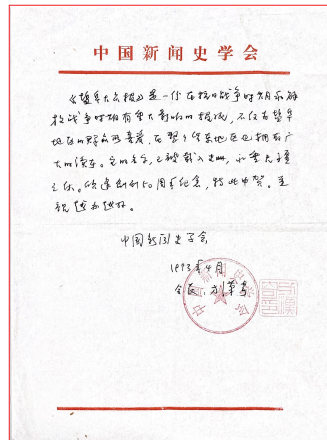 中国新闻史学会
《盐阜大众报》是一份在抗日战争时期和解
放战争时期有重大影响的报纸，不仅为盐阜
地区的群众所喜爱，在整个华东地区也拥有广
大的读者。它的名字已经载入史册，永垂
欣逢创刊50周年纪念，特此申贺。并
祝越办越好。
中国新闻史学会
1993年4月
会长：方汉奇
中国新闻史学会